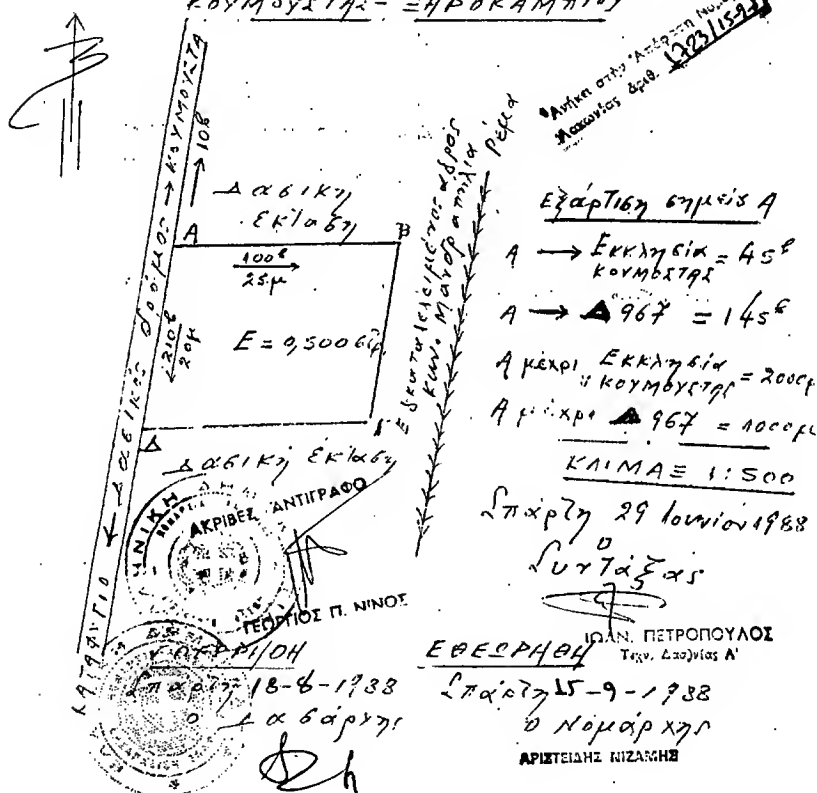 ΚΟΥΜΟΥΣΤΑΣ - ΞΗΡΟΚΑΜΠΙΟΥ
Ἀνήκει στήν Ἀπόφαση
Λακωνίας ἀριθ. 1723/15-9-
ΚΑΤΑΦΥΓΙΟ ← Δασικός δρόμος → ΚΟΥΜΟΥΣΤΑ
→ 10β
Δασική
έκταση
A
B
100β
25μ
210β
20μ
Ε = 0,500 στρ
Δ
Γ
Δασική έκταση
Εγκαταλελειμένος αγρός
Ρέμα
Εξάρτιση σημείο Α
Α → Εκκλησία ΚΟΥΜΟΣΤΑΣ = 45β
Α → Δ 967 = 145β
Α μέχρι Εκκλησία ΚΟΥΜΟΥΣΤΑΣ = 2000μ
Α μέχρι Δ 967 = 1000μ
ΚΛΙΜΑΞ 1:500
Σπάρτη 29 Ιουνίου 1988
Ο
Συντάξας
ΙΩΑΝ. ΠΕΤΡΟΠΟΥΛΟΣ
Τεχν. Δασ)νίας Α'
ΑΚΡΙΒΕΣ ΑΝΤΙΓΡΑΦΟ
ΓΕΩΡΓΙΟΣ Π. ΝΙΝΟΣ
Σπάρτη 18-8-1988
ο Δασάρχης
ΕΘΕΩΡΗΘΗ
Σπάρτη 15-9-1988
ο Νομάρχης
ΑΡΙΣΤΕΙΔΗΣ ΝΙΖΑΜΗΣ